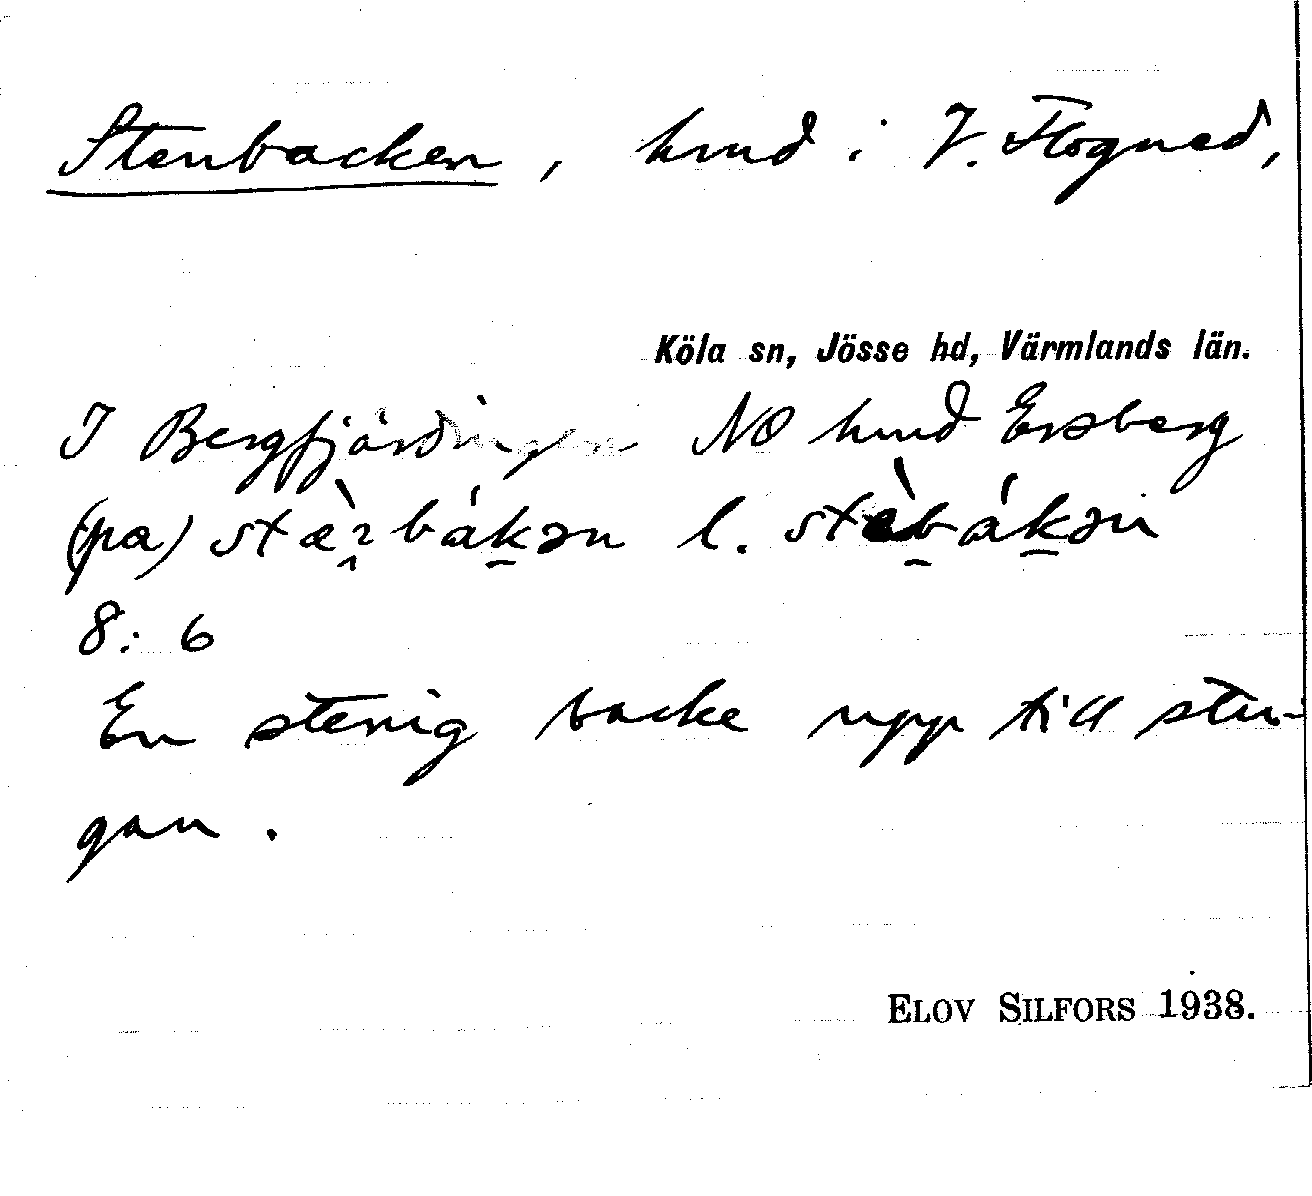 Stenbacken, hmd i V. Flogned,
Köla sn, Jösse hd, Värmlands län.
I Bergfjärdingen NO hmd Ersberg
(pa) stæ̀rbákən l. stæ̀bákən
8: 6
En stenig backe upp till stu-
gan.
ELOV SILFORS 1938.